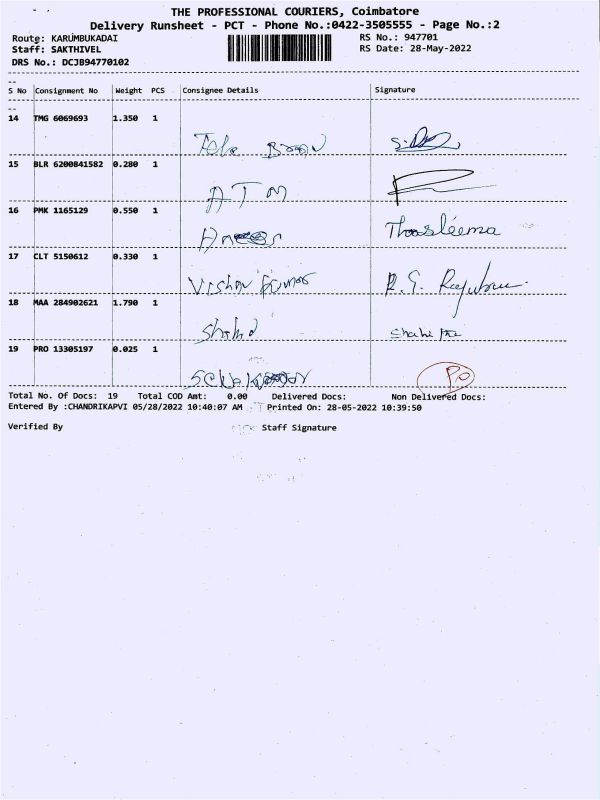 THE PROFESSIONAL COURIERS, Coimbatore
Delivery Runsheet - PCT - Phone No.:0422-3505555 - Page No.:2
Route: KARUMBUKADAI RS No.: 947701
Staff: SAKTHIVEL RS Date: 28-May-2022
DRS No.: DCJB94770102
S No Consignment No Weight PCS Consignee Details Signature
14 TMG 6069693 1.350 1
15 BLR 6200841582 0.280 1
ATM
16 PMK 1165129 0.550 1
Thasleema
17 CLT 5150612 0.330 1
Vishnu Kumar R.G.
18 MAA 284902621 1.790 1
Shahid
19 PRO 13305197 0.025 1
Total No. Of Docs: 19 Total COD Amt: 0.00 Delivered Docs: Non Delivered Docs:
Entered By :CHANDRIKAPVI 05/28/2022 10:40:07 AM Printed On: 28-05-2022 10:39:50
Verified By Staff Signature